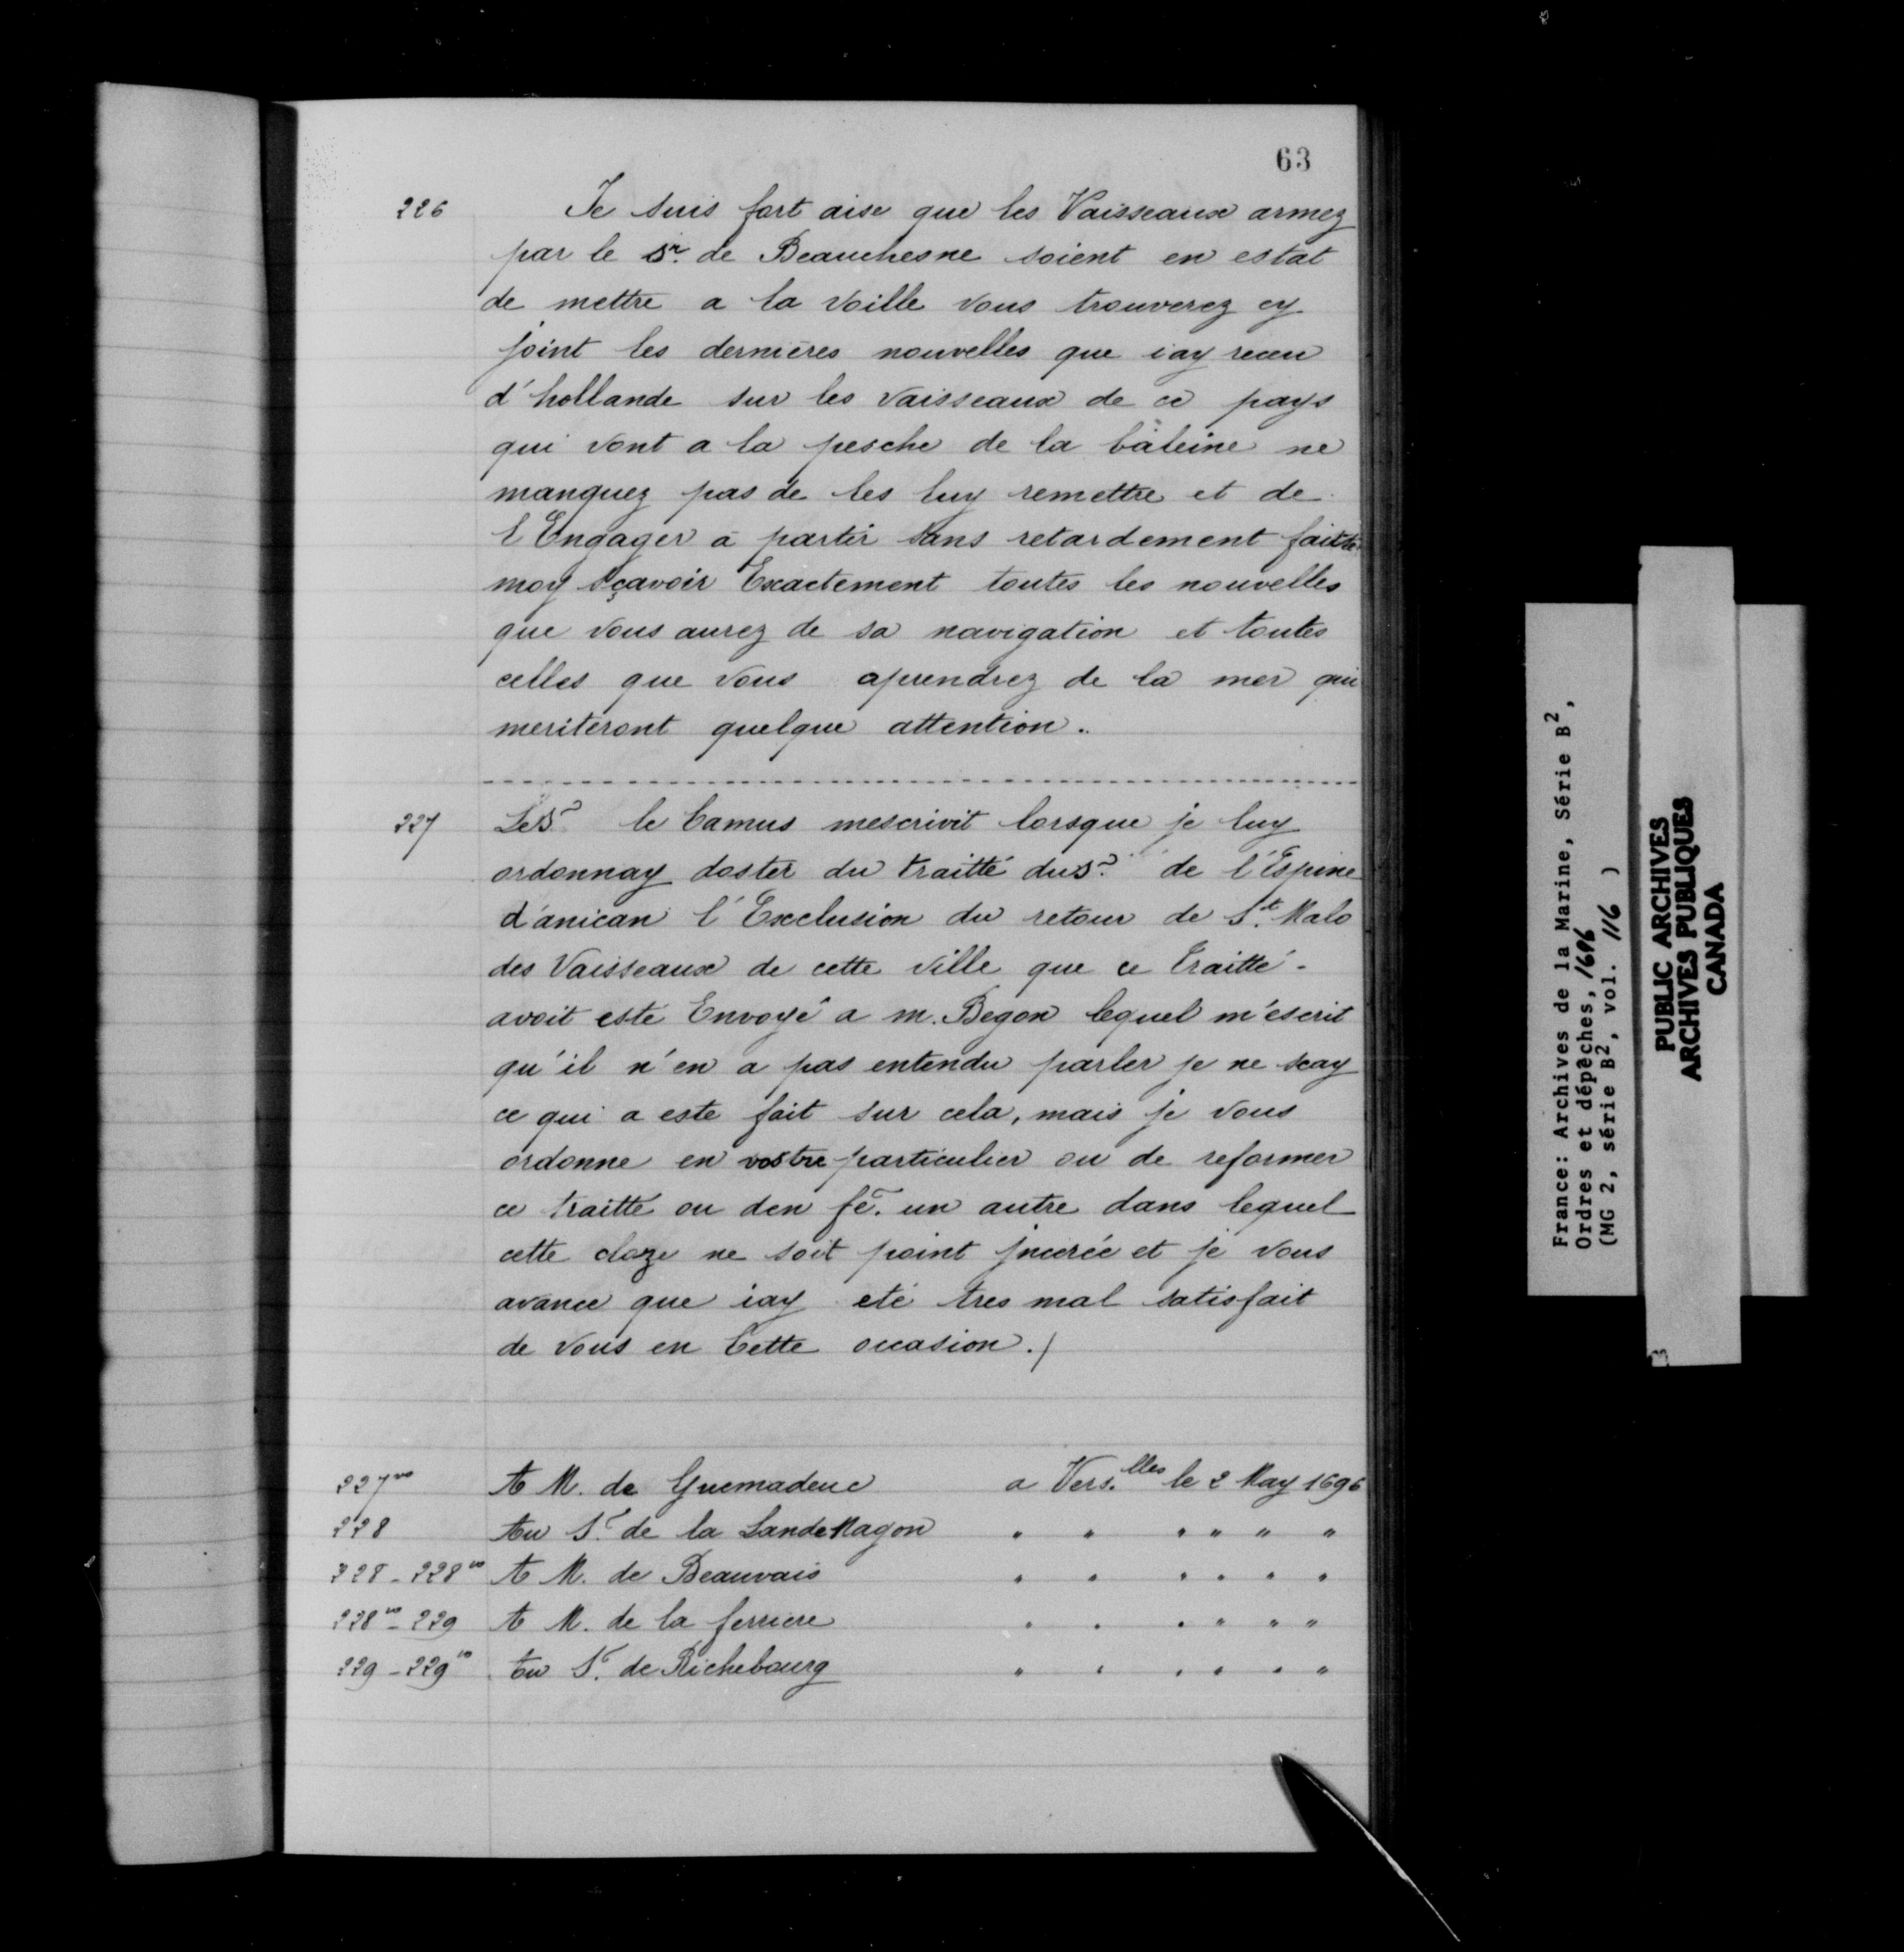 63
226 Je suis fort aise que les Vaisseaux armez
par le Sr. de Beauchesne soient en estat
de mettre a la voille vous trouverez cy
joint les dernieres nouvelles que iay receu
d'hollande sur les vaisseaux de ce pays
qui vont a la pesche de la baleine ne
manquez pas de les luy remettre et de
l'Engager a partir sans retardement faittes
moy sçavoir Exactement toutes les nouvelles
que vous aurez de sa navigation et toutes
celles que vous aprendrez de la mer qui
meriteront quelque attention..
227 Le Sr. le Camus mescrivit lorsque je luy
ordonnay doster du traitté du Sr. de l'Espine
d'anican l'Exclusion du retour de St. Malo
des Vaisseaux de cette ville que ce traitté -
avoit esté Envoyé a m. Begon lequel m'escrit
qu'il n'en a pas entendu parler je ne scay
ce qui a este fait sur cela, mais je vous
ordonne en vostre particulier ou de reformer
ce traitté ou den fe. un autre dans lequel
cette cloze ne soit point jncerée et je vous
avance que iay eté tres mal satisfait
de vous en Cette occasion./
227vo A M. de Guemadeuc a Vers.lles le 2 May 1696
228 Au Sr. de la Lande Magon " " " " " "
228-228vo A M. de Beauvais " " " " " "
228vo-229 A M. de la ferriere " " " " " "
229-229vo Au Sr. de Richebourg " " " " " "
France: Archives de la Marine, Série B2,
Ordres et dépêches, 1696
(MG 2, série B2, vol. 116 )
PUBLIC ARCHIVES
ARCHIVES PUBLIQUES
CANADA